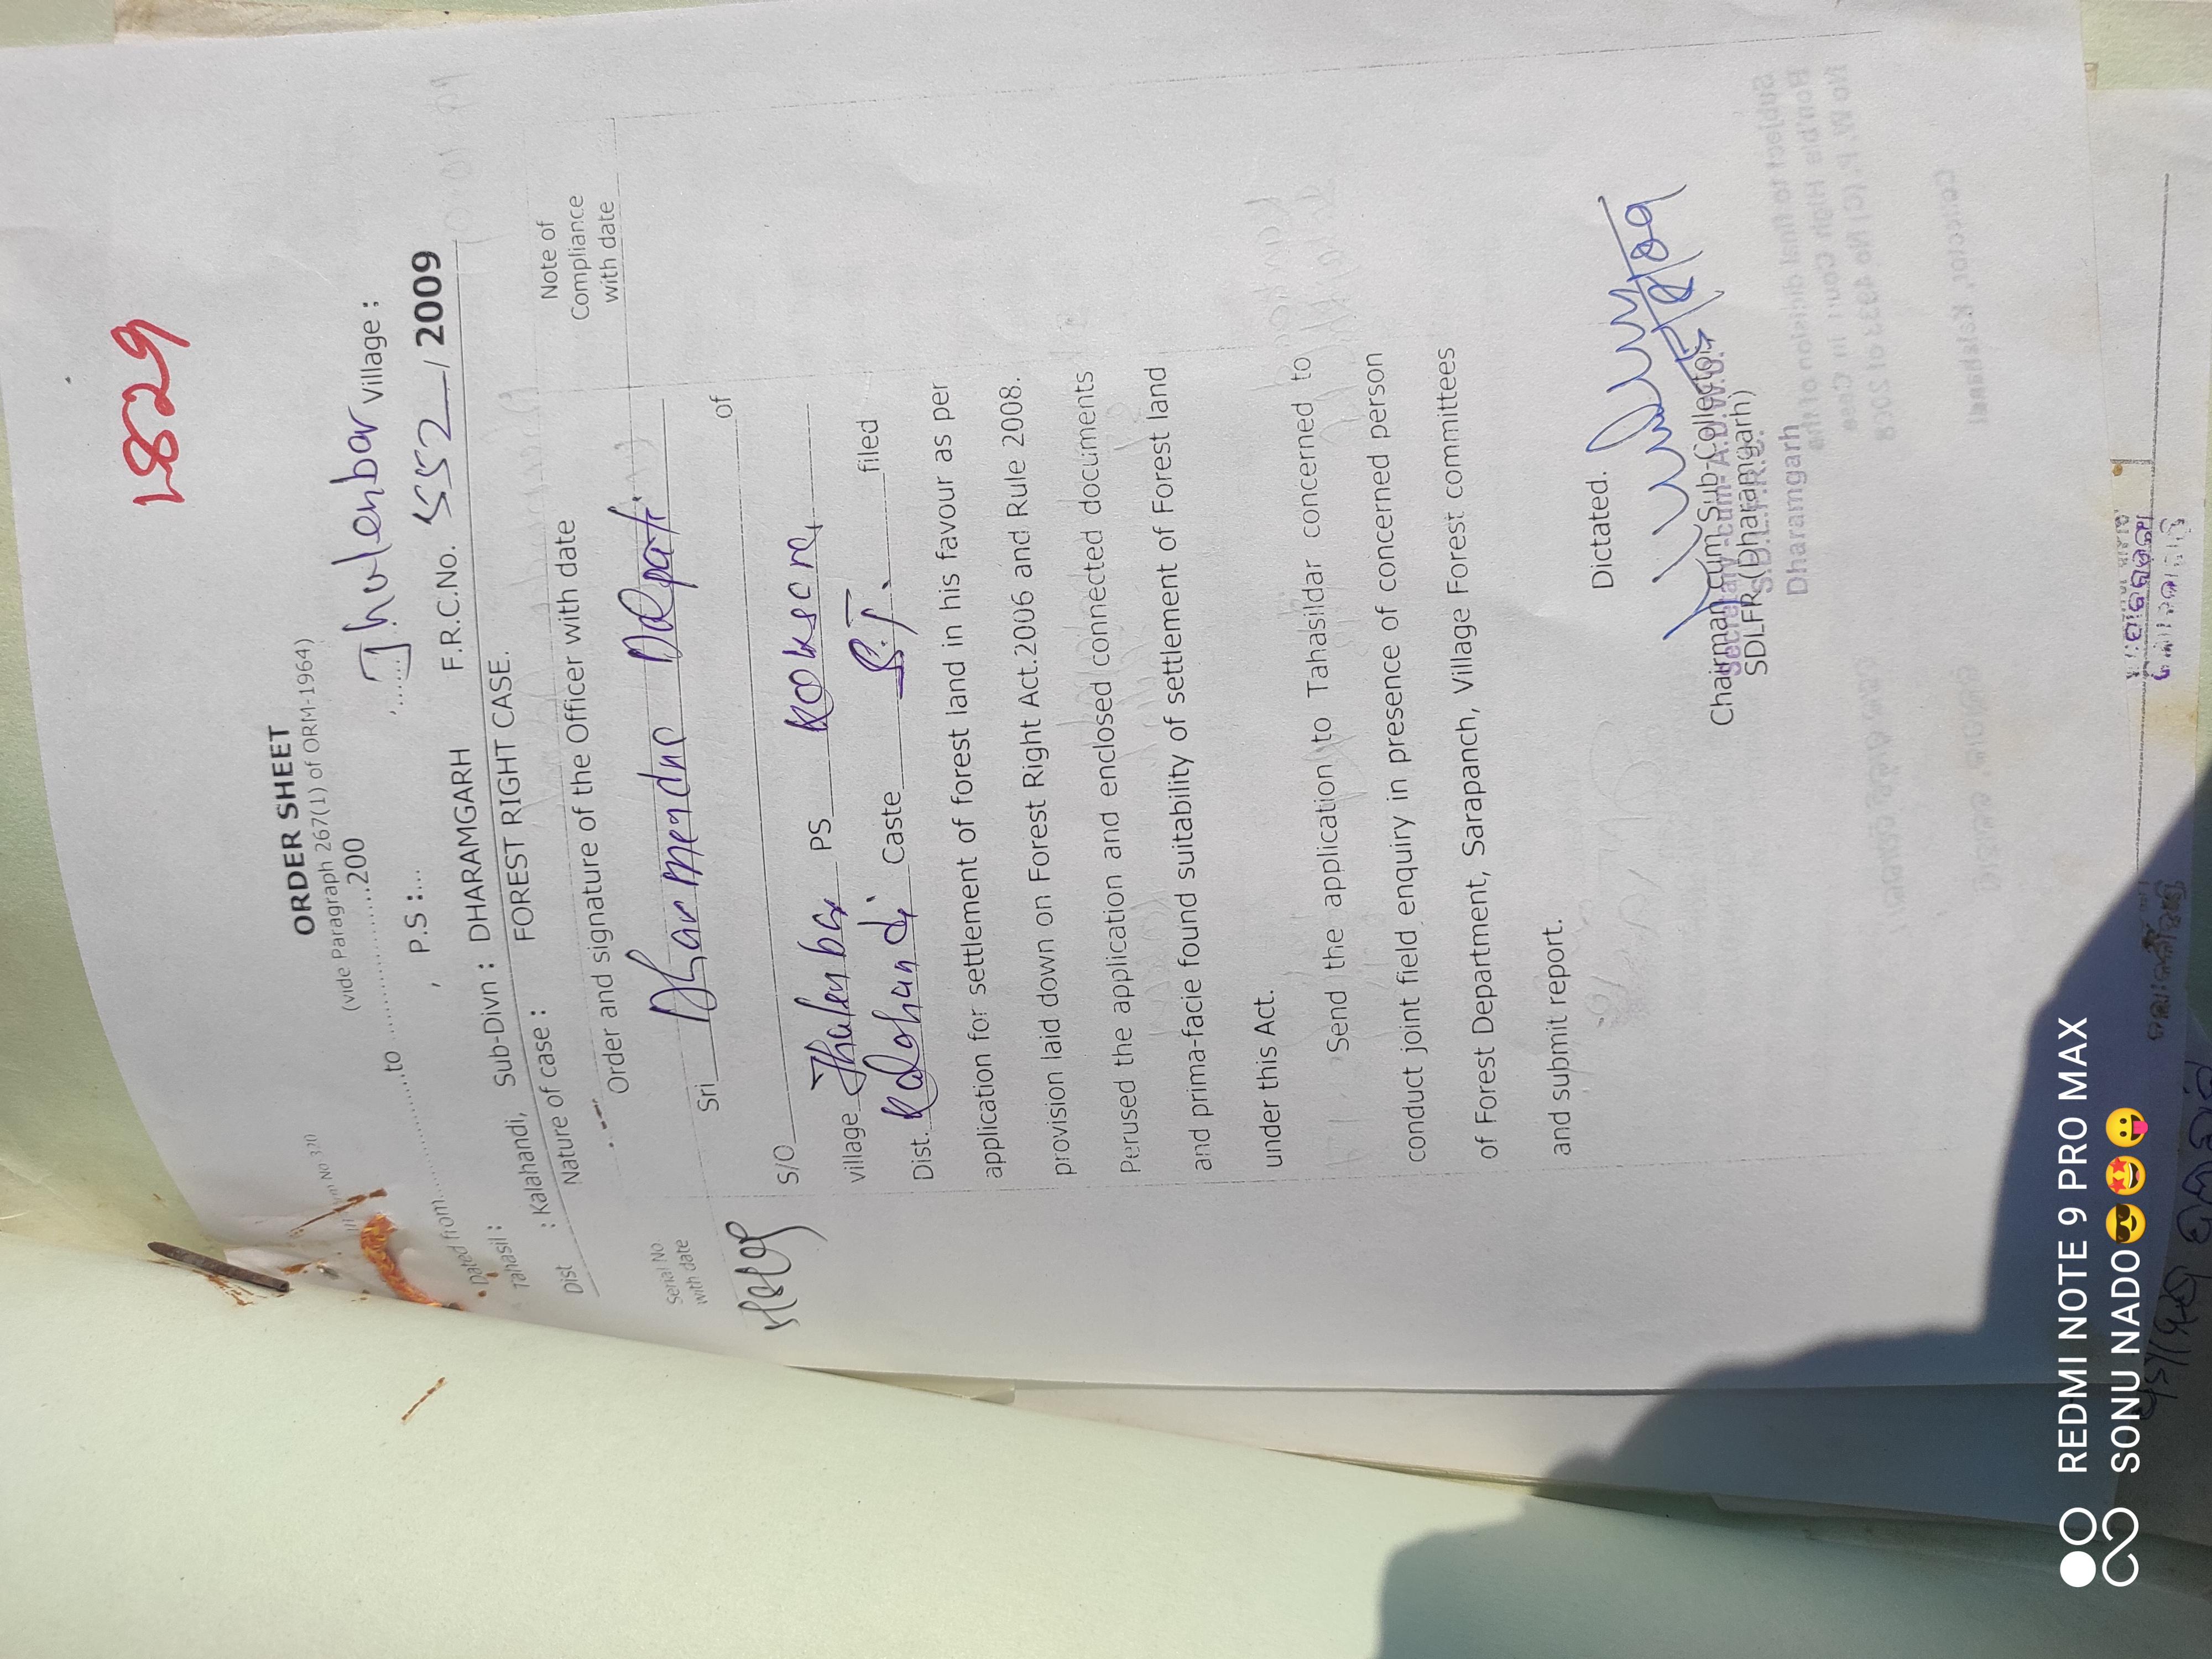 1829
ORDER SHEET
(vide Paragraph 267(1) of ORM-1964)
No 320
Dated from...............to ....................200
Jhulenbar Village :
Tahasil : , P.S :...
F.R.C.No. 552 / 2009
Dist : Kalahandi, Sub-Divn : DHARAMGARH
Nature of case : FOREST RIGHT CASE.
Serial No with date
Order and signature of the Officer with date
Note of Compliance with date
Sri Dharmendra Dalpati
S/O of
village Jhalenbar PS Koksara
Dist. Kalahandi Caste S.T. filed
application for settlement of forest land in his favour as per
provision laid down on Forest Right Act.2006 and Rule 2008.
Perused the application and enclosed connected documents
and prima-facie found suitability of settlement of Forest land
under this Act.
Send the application to Tahasildar concerned to
conduct joint field enquiry in presence of concerned person
of Forest Department, Sarapanch, Village Forest committees
and submit report.
Dictated.
Chairman cum Sub-Collector
Secretary-cum-A.D.W.O.
SDLFR (Dharamgarh)
S.D.L.F.R.C.
Dharamgarh
REDMI NOTE 9 PRO MAX
SONU NADO😎🤩😛